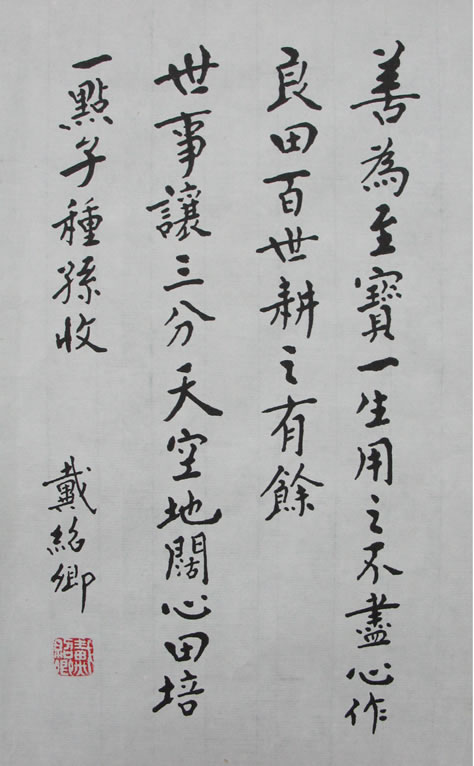 善為至寶一生用之不盡心作
良田百世耕之有餘
世事讓三分天空地闊心田培
一點子種孫收
戴紹卿
戴紹卿